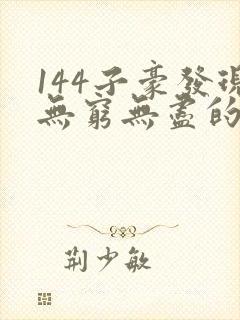 144子豪發現
無窮無盡的
荊少敏